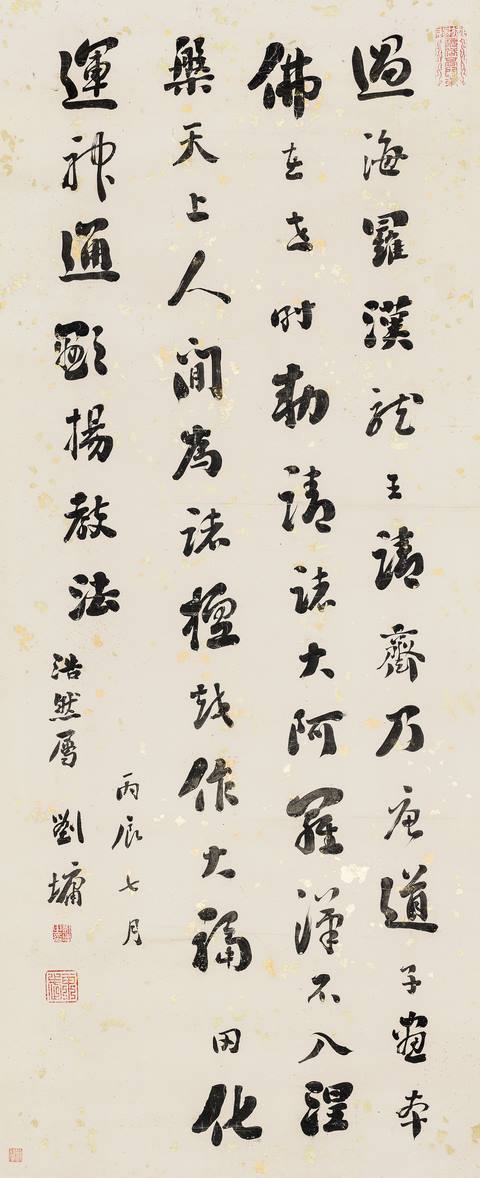 過海羅漢龍王請齋乃唐道子畫本
佛在世時勅請諸大阿羅漢不入涅
槃天上人間為諸檀越作大福田化
運神通顯揚教法
丙辰七月
浩然屬 劉墉